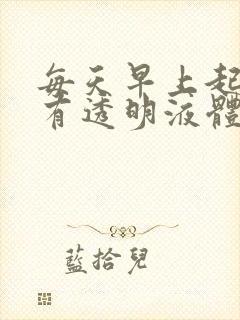 每天早上起
有透明液體
藍拾兒